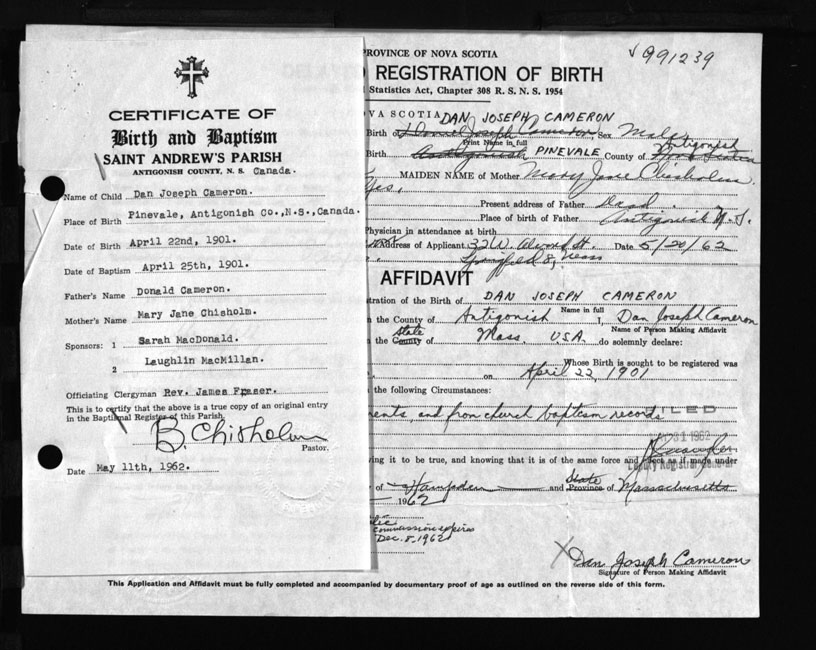 CERTIFICATE OF
Birth and Baptism
SAINT ANDREW'S PARISH
ANTIGONISH COUNTY, N. S. Canada.
Name of Child Dan Joseph Cameron.
Place of Birth Pinevale, Antigonish Co.,N.S.,Canada.
Date of Birth April 22nd, 1901.
Date of Baptism April 25th, 1901.
Father's Name Donald Cameron.
Mother's Name Mary Jane Chisholm.
Sponsors: 1 Sarah MacDonald.
2 Laughlin MacMillan.
Officiating Clergyman Rev. James Fraser.
This is to certify that the above is a true copy of an original entry
in the Baptismal Register of this Parish.
B. Chisholm
Pastor.
Date May 11th, 1962.
PROVINCE OF NOVA SCOTIA
991239
REGISTRATION OF BIRTH
Statistics Act, Chapter 308 R. S. N. S. 1954
OVA SCOTIA
DAN JOSEPH CAMERON
Birth of Joseph Cameron Sex Male
Print Name in full
Antigonish
Birth Antigonish PINEVALE County of
MAIDEN NAME of Mother Mary Jane Chisholm
Yes,
Present address of Father Dead.
Place of birth of Father Antigonish N.S.
Physician in attendance at birth
Address of Applicant 32 W. Alvord St. Date 5/20/62
Springfield 8, Mass
AFFIDAVIT
stration of the Birth of DAN JOSEPH CAMERON
Name in full
n the County of Antigonish I, Dan Joseph Cameron
Name of Person Making Affidavit
State
n the County of Mass. U.S.A. do solemnly declare:
Whose Birth is sought to be registered was
on April 22, 1901
the following Circumstances:
ents, and from church baptism records
FILED
1962
Deputy Registrar General
ing it to be true, and knowing that it is of the same force and effect as if made under
State
of Hampden and Province of Massachusetts
1962
commission expires
Dec. 8, 1962
X Dan Joseph Cameron
Signature of Person Making Affidavit
This Application and Affidavit must be fully completed and accompanied by documentary proof of age as outlined on the reverse side of this form.